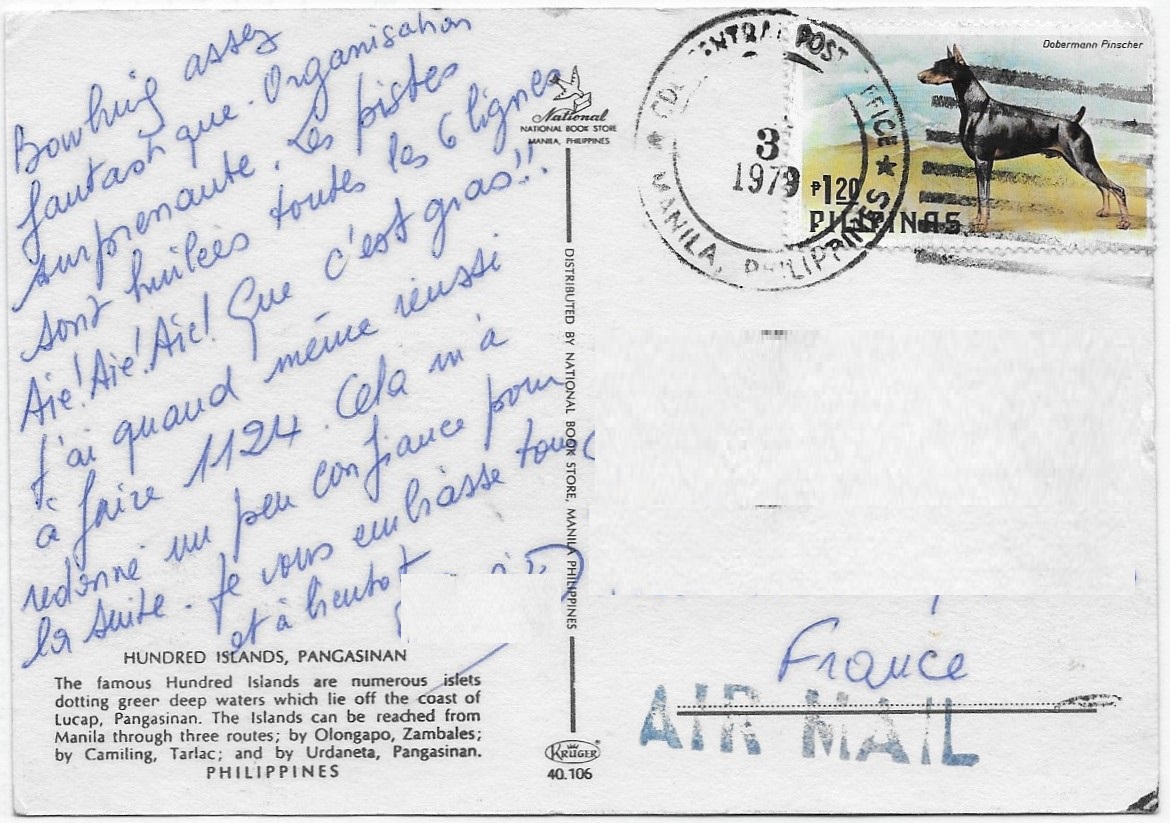 Bowling assez
fantastique. Organisation
surprenante. Les pistes
sont huilées toutes les 6 lignes
Aïe! Aïe! Aïe! Que c'est gras!!
J'ai quand même réussi
à faire 1124. Cela m'a
redonné un peu confiance pour
la suite. Je vous embrasse tous
et à bientot
HUNDRED ISLANDS, PANGASINAN
The famous Hundred Islands are numerous islets
dotting green deep waters which lie off the coast of
Lucap, Pangasinan. The Islands can be reached from
Manila through three routes; by Olongapo, Zambales;
by Camiling, Tarlac; and by Urdaneta, Pangasinan.
PHILIPPINES
National
NATIONAL BOOK STORE
MANILA, PHILIPPINES
DISTRIBUTED BY NATIONAL BOOK STORE, MANILA PHILIPPINES
KRUGER
40.106
CENTRAL POST OFFICE
3
1979
MANILA, PHILIPPINES
Dobermann Pinscher
₱1.20
PILIPINAS
France
AIR MAIL